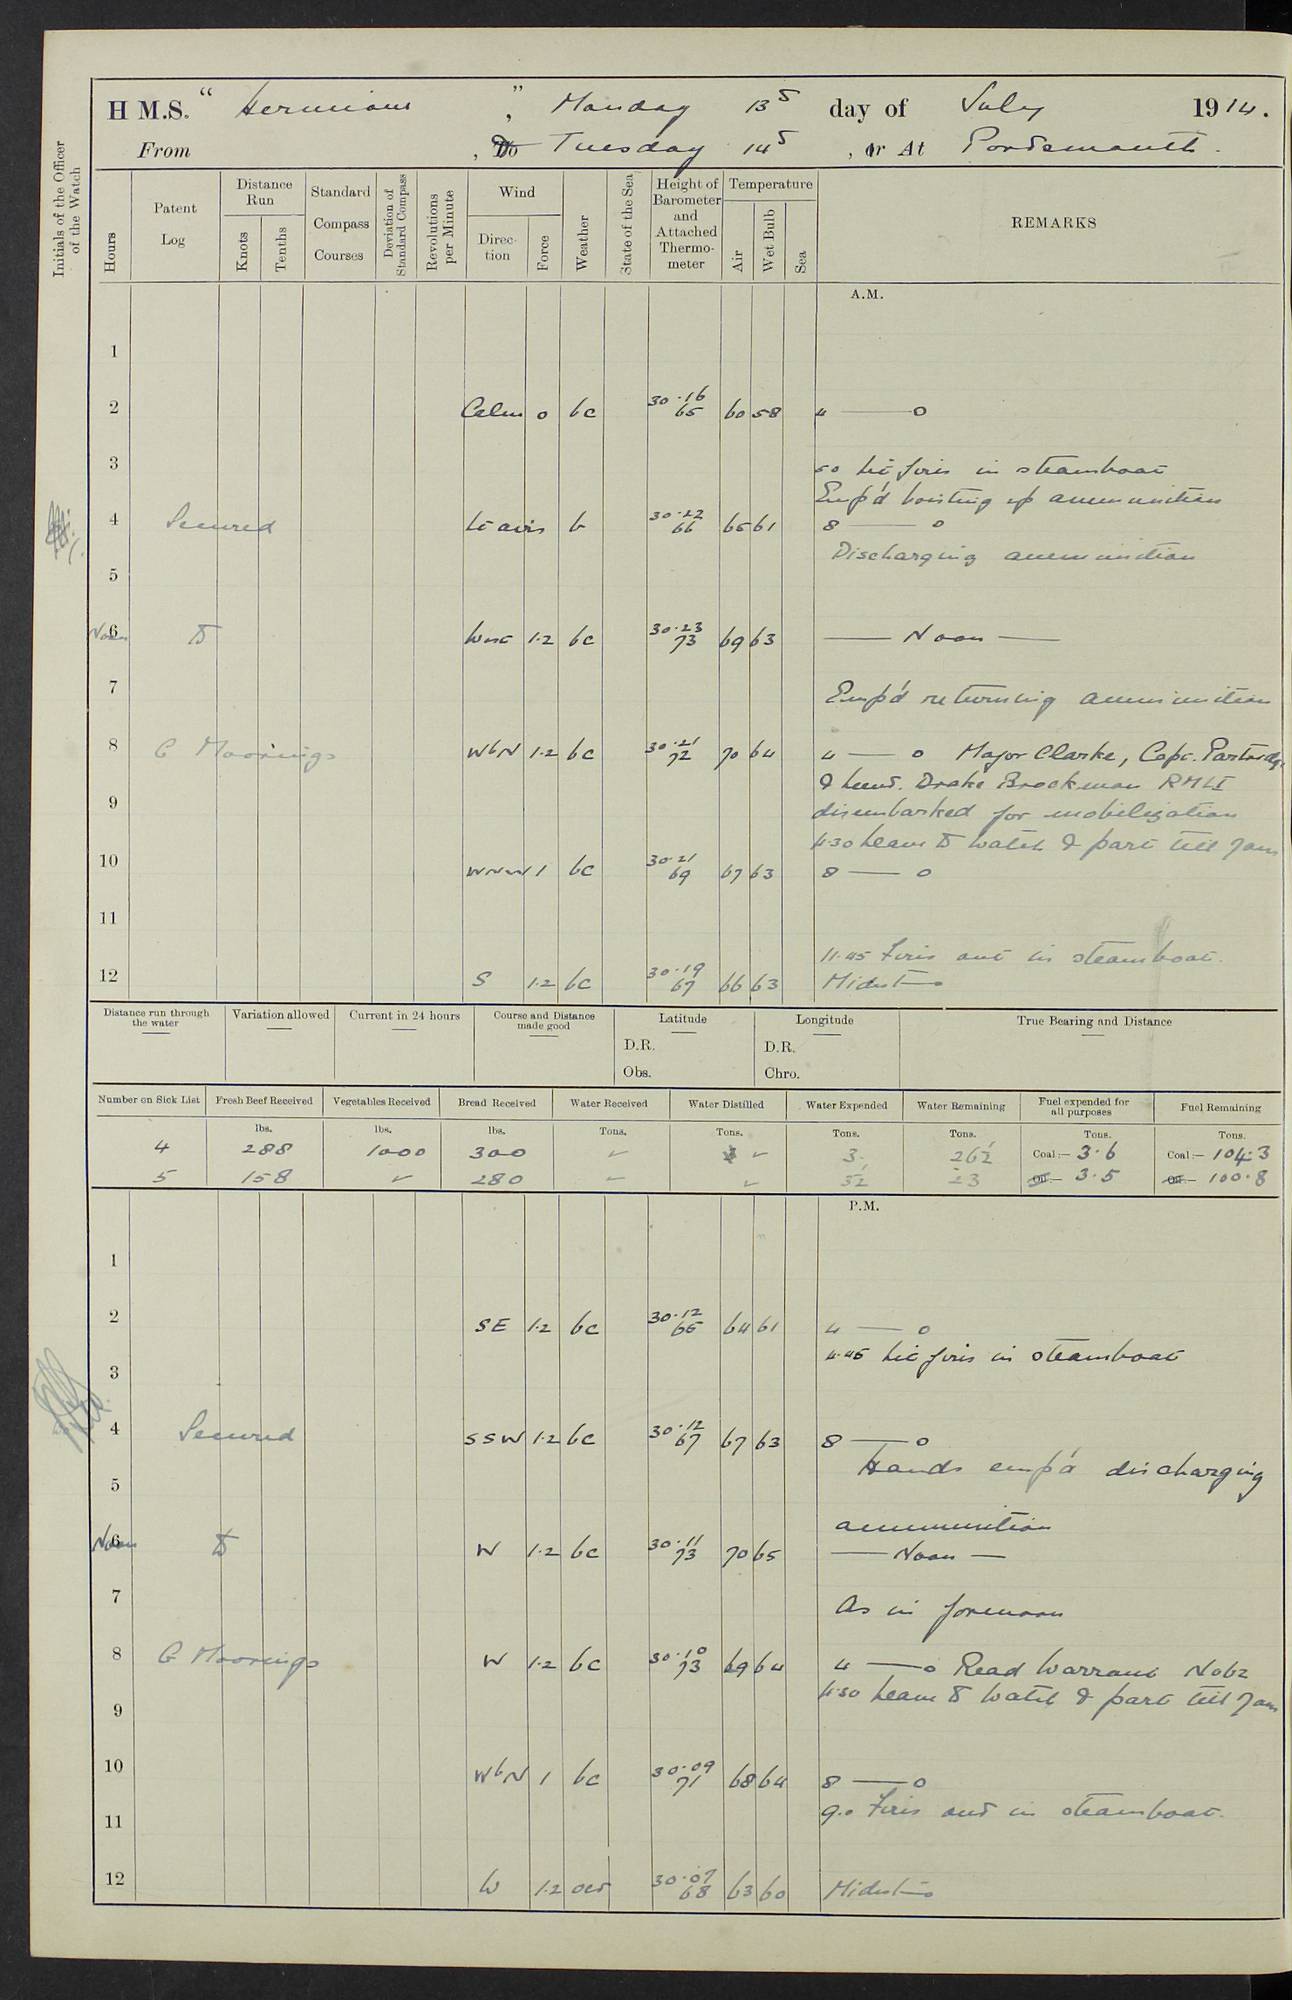 H M.S. " Hermione ", Monday 13th day of July 1914.
From , To Tuesday 14th , or At Portsmouth.
Initials of the Officer of the Watch
Hours
Patent Log
Distance Run
Knots
Tenths
Standard Compass Courses
Deviation of Standard Compass
Revolutions per Minute
Wind
Direction
Force
Weather
State of the Sea
Height of Barometer and Attached Thermometer
Temperature
Air
Wet Bulb
Sea
REMARKS
A.M.
1
2 Calm 0 bc 30.16 65 60 58 4 — 0
3 50 lit fires in steamboat
Emp'd hoisting up ammunition
4 Secured Lt airs b 30.22 66 65 61 8 — 0
Discharging ammunition
5
6 Noon Do 1.2 bc 30.23 73 69 63 — Noon —
7 Emp'd returning ammunition
8 C Moorings WbN 1.2 bc 30.21 72 70 64 4 — 0 Major Clarke, Capt. Partridge
& Lieut. Drake Brockman RMLI
9 disembarked for mobilization
4.30 Leave to watch & part till 7am
10 WNW 1 bc 30.21 69 67 63 8 — 0
11
11.45 Fires out in steamboat.
12 S 1.2 bc 30.19 67 66 63 Midnt
Distance run through the water
Variation allowed
Current in 24 hours
Course and Distance made good
Latitude
D.R.
Obs.
Longitude
D.R.
Chro.
True Bearing and Distance
Number on Sick List
Fresh Beef Received
Vegetables Received
Bread Received
Water Received
Water Distilled
Water Expended
Water Remaining
Fuel expended for all purposes
Fuel Remaining
lbs. lbs. lbs. Tons. Tons. Tons. Tons. Tons. Tons.
4 288 1000 300 ✓ ✓ 3 262 Coal:— 3.6 Coal:— 104.3
5 158 ✓ 280 ✓ ✓ 52 23 Oil:— 3.5 Oil:— 100.8
P.M.
1
2 SE 1.2 bc 30.12 65 64 61 4 — 0
4.45 Lit fires in steamboat
3
4 Secured SSW 1.2 bc 30.12 67 67 63 8 — 0
Hands emp'd discharging
5
ammunition
6 Noon Do W 1.2 bc 30.11 73 70 65 — Noon —
7 As in forenoon
8 C Moorings W 1.2 bc 30.10 73 69 64 4 — 0 Read Warrant No 62
4.30 Leave to watch & part till 7am
9
10 WbN 1 bc 30.09 71 68 64 8 — 0
9.0 Fires out in steamboat.
11
12 W 1.2 30.07 68 63 60 Midnt